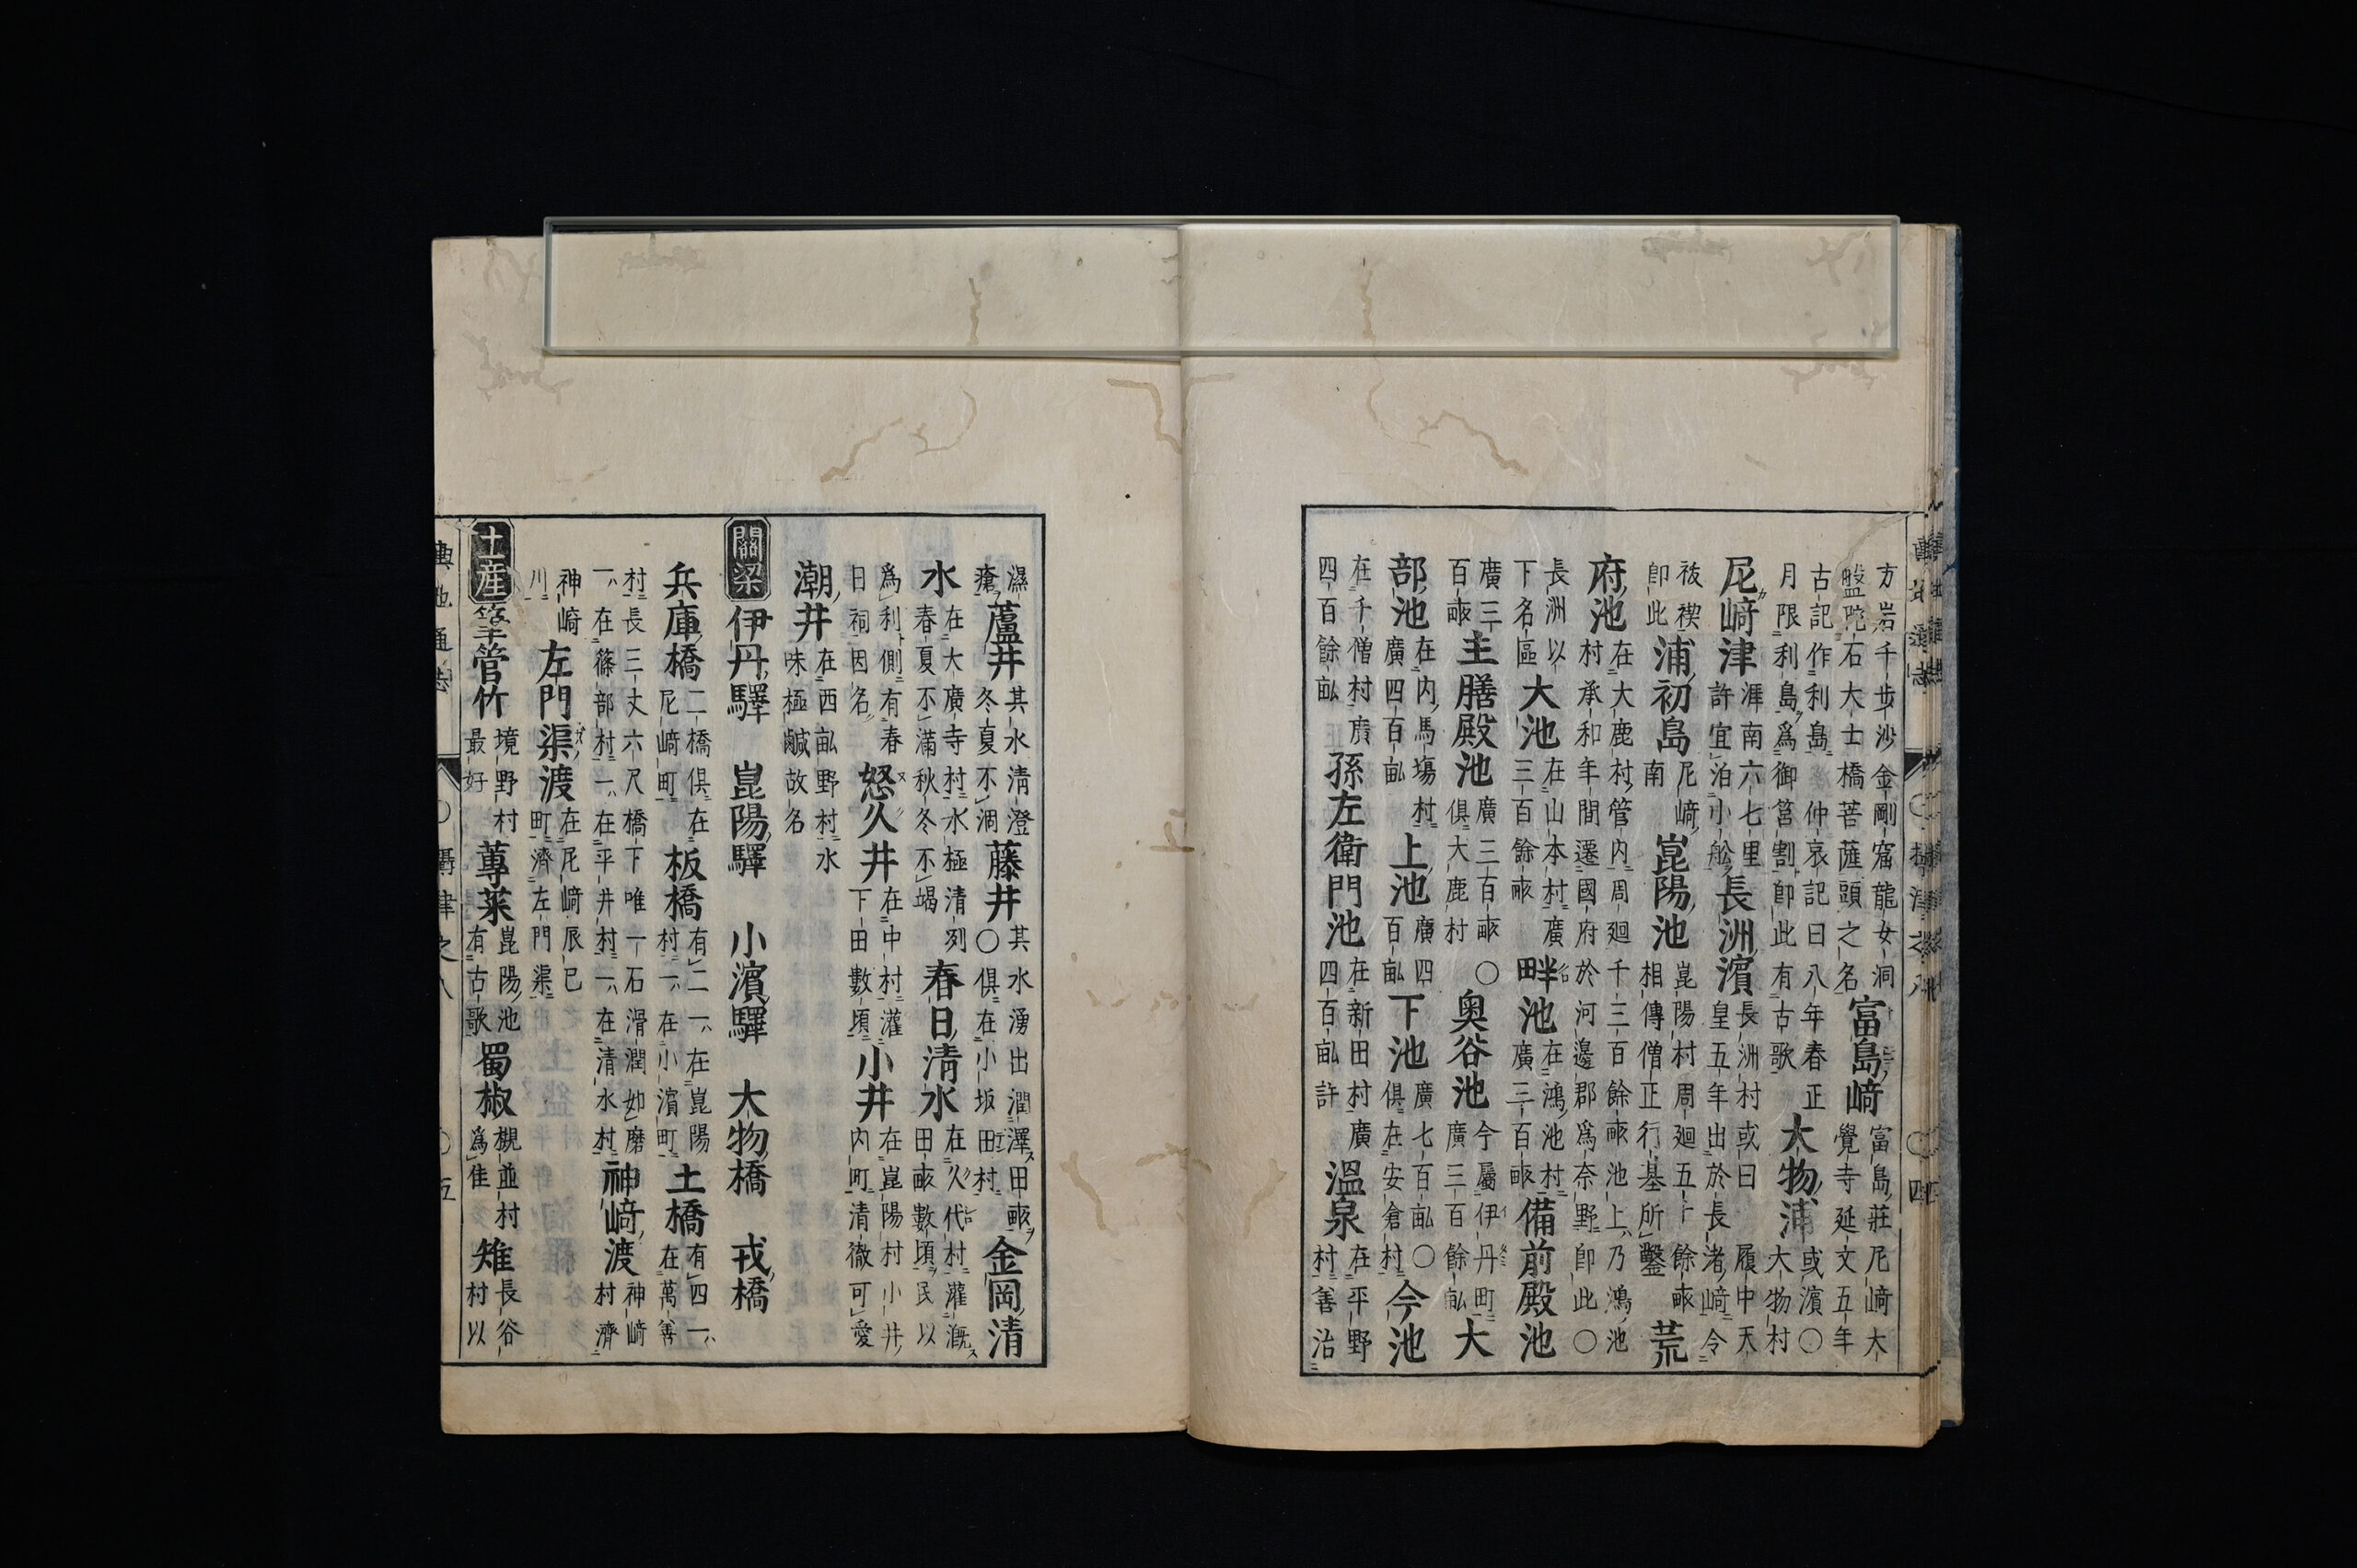 方岩千步沙金剛窟龍女洞盤陀石大士橋菩薩頭之名富島﨑富島莊尼﨑大覺寺延文五年
古記作利島仲哀記曰八年春正月限利島爲御筥割卽此有古歌大物浦或濱〇大物村
尼﨑津涯南六七里許宜泊小舩長洲濱長洲村或曰履中天皇五年出於長渚﨑令
祓禊卽此浦初島尼﨑南崑陽池崑陽村周廻五十餘畞相傳僧正行基所鑿荒
府池在大鹿村管内周廻千三百餘畞池上乃鴻池村承和年間遷國府於河邊郡爲奈野卽此〇
長洲以下名區大池在山本村廣三百餘畞畔池在鴻池村廣三百畞備前殿池
廣三百畞主膳殿池廣三百畞〇俱大鹿村奥谷池今屬伊丹町廣三百餘畝大
部池在内馬塲村廣四百畝上池廣四百畝下池廣七百畝〇俱在安倉村今池
在千僧村廣四百餘畝孫左衛門池在新田村廣四百畝許溫泉在平野村善治
濕瘡蘆井其水清澄冬夏不涸藤井其水湧出潤澤田畞〇俱在小坂田村金岡清
水在大廣寺村水極清冽春夏不滿秋冬不竭春日清水在久代村灌漑田畞數頃民以
爲利側有春日祠因名怒久井在中村灌下田數頃小井在崑陽村小井内町清徹可愛
潮井在西畝野村水味極鹹故名
關梁伊丹驛 崑陽驛 小濱驛 大物橋 戎橋
兵庫橋二橋俱在尼﨑町板橋有二一在崑陽村一在小濱町土橋有四一在萬善
村長三丈六尺橋下唯一石滑潤如磨一在篠部村一在平井村一在清水村神﨑渡神﨑村濟
神﨑川左門渠渡在尼﨑辰巳町濟左門渠
土產筆管竹境野村最好蓴菜崑陽池有古歌蜀椒槻並村爲佳雉長谷村以